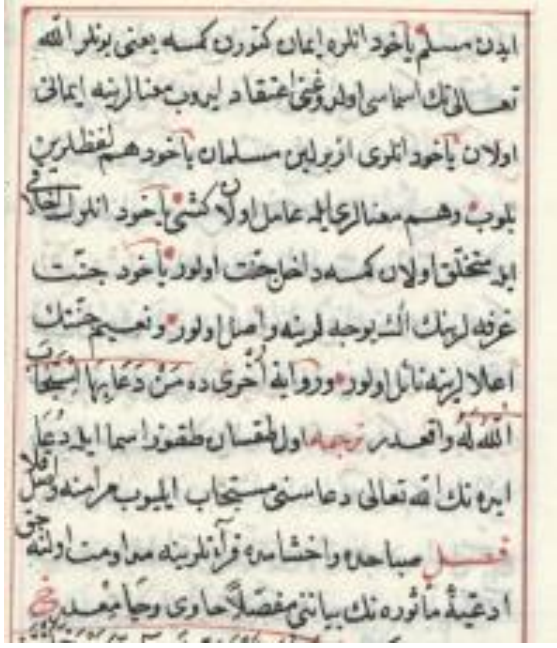 ایدن مسلم یاخود انلره ایمان کتورن کمسه یعنی بونلر الله
تعالی‌نك اسماسی اولدوغنی اعتقاد ایدوب معنالرینه ایمانی
اولان یاخود انلری ازبرلین مسلمان یاخود هم لفظلرین
بلوب وهم معنالری ایله عامل اولان کشی یاخود انلرك اخلاقی
ایله متخلق اولان کمسه داخل جنت اولور یاخود جنت
غرفه لرینك الك یوجه لرینه واصل اولور ونعیم جنتك
اعلالرینه نائل اولور وروایه اخری ده مَنْ دَعَا بِهَا اسْتَجَابَ
اللّٰهُ لَهُ واقعدر ترجمه اول طقسان طقوز اسما ایله دعا
ایده نك الله تعالی دعاسنی مستجاب ایلیوب مرامنه واصل قلا
فصل صباحده واخشامده قرائتلرینه مداومت اولنه جق
ادعیهٔ مأثوره نك بیاننی مفصلاً حاوی وجامعدر